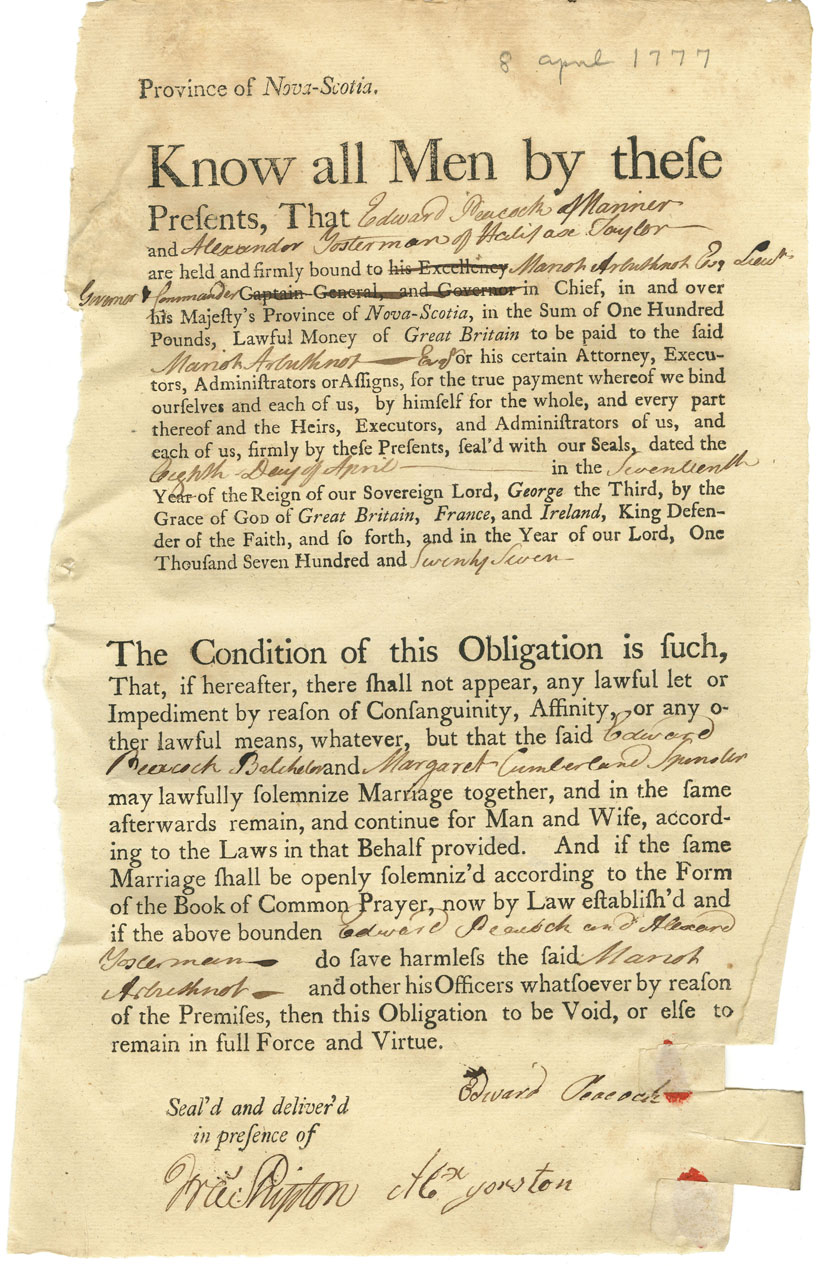 8 april 1777
Province of Nova-Scotia.
Know all Men by theſe
Preſents, That Edward Peacock of Mariner
and Alexander Yosterman of Halifax Taylor
are held and firmly bound to his Excellency Mariot Arbuthnot Esq Lieut
Governor & Commander Captain General, and Governor in Chief, in and over
his Majeſty's Province of Nova-Scotia, in the Sum of One Hundred
Pounds, Lawful Money of Great Britain to be paid to the ſaid
Mariot Arbuthnot Esq or his certain Attorney, Execu-
tors, Adminiſtrators or Aſſigns, for the true payment whereof we bind
ourſelves and each of us, by himſelf for the whole, and every part
thereof and the Heirs, Executors, and Adminiſtrators of us, and
each of us, firmly by theſe Preſents, ſeal'd with our Seals, dated the
Eighth Day of April in the Seventeenth
Year of the Reign of our Sovereign Lord, George the Third, by the
Grace of God of Great Britain, France, and Ireland, King Defen-
der of the Faith, and ſo forth, and in the Year of our Lord, One
Thouſand Seven Hundred and Seventy Seven
The Condition of this Obligation is ſuch,
That, if hereafter, there ſhall not appear, any lawful let or
Impediment by reaſon of Conſanguinity, Affinity, or any o-
ther lawful means, whatever, but that the ſaid Edward
Peacock Batchelor and Margaret Cumberland Spinster
may lawfully ſolemnize Marriage together, and in the ſame
afterwards remain, and continue for Man and Wife, accord-
ing to the Laws in that Behalf provided. And if the ſame
Marriage ſhall be openly ſolemniz'd according to the Form
of the Book of Common Prayer, now by Law eſtabliſh'd and
if the above bounden Edward Peacock and Alexand
Yosterman do ſave harmleſs the ſaid Mariot
Arbuthnot and other his Officers whatſoever by reaſon
of the Premiſes, then this Obligation to be Void, or elſe to
remain in full Force and Virtue.
Edward Peacock
Seal'd and deliver'd
in preſence of
Shipton Alex yorston